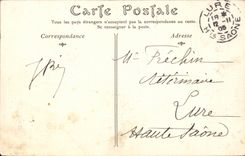 Carte Postale
Tous les pays étrangers n'acceptent pas la correspondance au recto.
Se renseigner à la poste.
Correspondance
Adresse
LURE
Hte SAÔNE
Mr Fréchin
Vétérinaire
Lure
Haute Saône